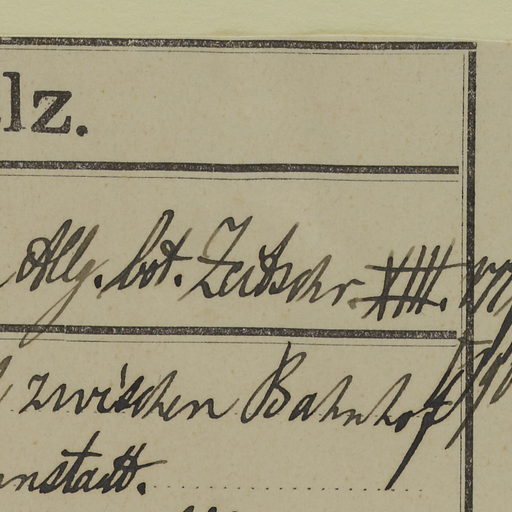 lz.
Allg. bot. Zeitschr. XIII.
zwischen Bahnhof
nstadt.